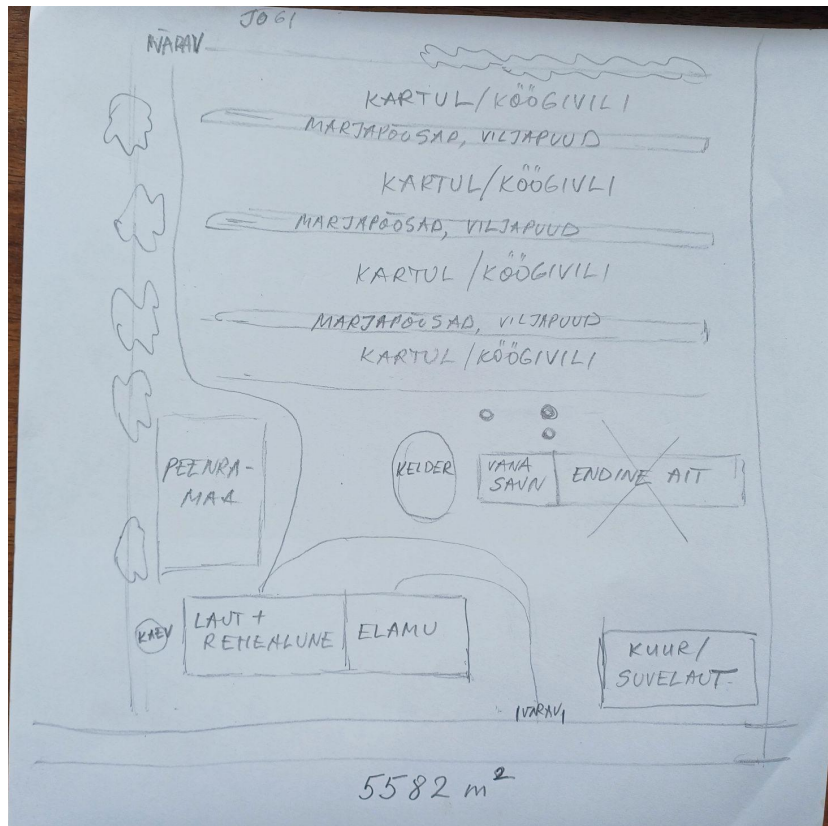 JOGI
VÄRAV
KARTUL/KÖÖGIVILI
MARJAPÕÕSAD, VILJAPUUD
KARTUL/KÖÖGIVLI
MARJAPÕÕSAD, VILJAPUUD
KARTUL/KÖÖGIVILI
MARJAPÕÕSAD, VILJAPUUD
KARTUL/KÖÖGIVILI
PEENRA-
MAA
KELDER
VANA
SAUN
ENDINE AIT
KAEV
LAUT +
REHEALUNE
ELAMU
KUUR/
SUVELAUT
VÄRAV
5582 m²